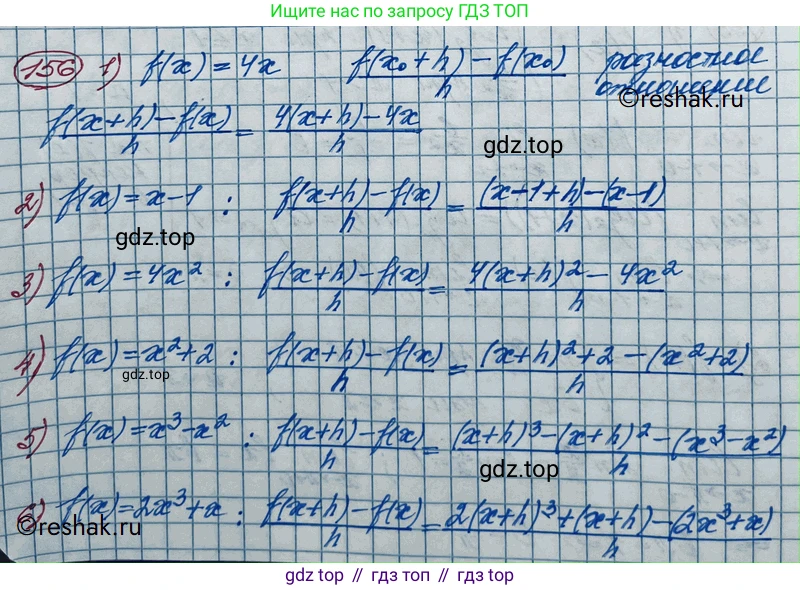 Ищите нас по запросу ГДЗ ТОП
156 1) f(x) = 4x (f(x₀+h) – f(x₀))/h разностное отношение
©reshak.ru
(f(x+h) – f(x))/h = (4(x+h) – 4x)/h
gdz.top
2) f(x) = x–1 : (f(x+h) – f(x))/h = (x–1+h) – (x–1)/h
gdz.top
3) f(x) = 4x² : (f(x+h) – f(x))/h = (4(x+h)² – 4x²)/h
4) f(x) = x²+2 : (f(x+h) – f(x))/h = ((x+h)²+2 – (x²+2))/h
gdz.top
5) f(x) = x³–x² : (f(x+h) – f(x))/h = ((x+h)³–(x+h)² – (x³–x²))/h
gdz.top
6) f(x) = 2x³+x : (f(x+h) – f(x))/h = (2(x+h)³+(x+h) – (2x³+x))/h
©reshak.ru
gdz top // гдз топ // gdz top